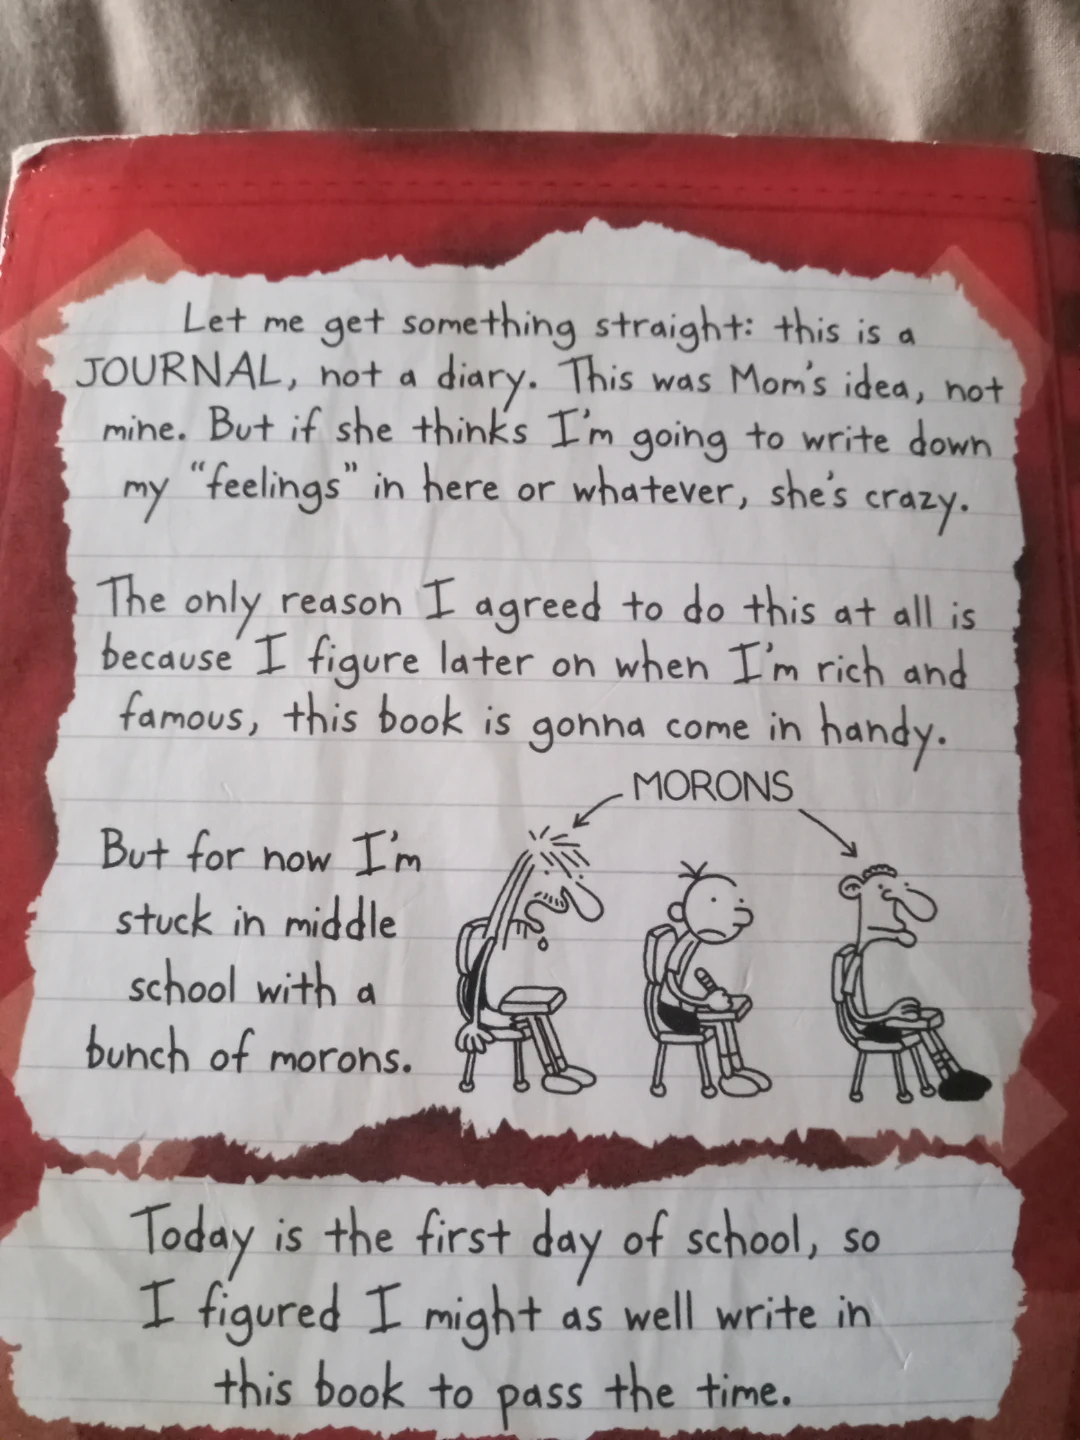 Let me get something straight: this is a
JOURNAL, not a diary. This was Mom's idea, not
mine. But if she thinks I'm going to write down
my “feelings” in here or whatever, she's crazy.
The only reason I agreed to do this at all is
because I figure later on when I'm rich and
famous, this book is gonna come in handy.
MORONS
But for now I'm
stuck in middle
school with a
bunch of morons.
Today is the first day of school, so
I figured I might as well write in
this book to pass the time.